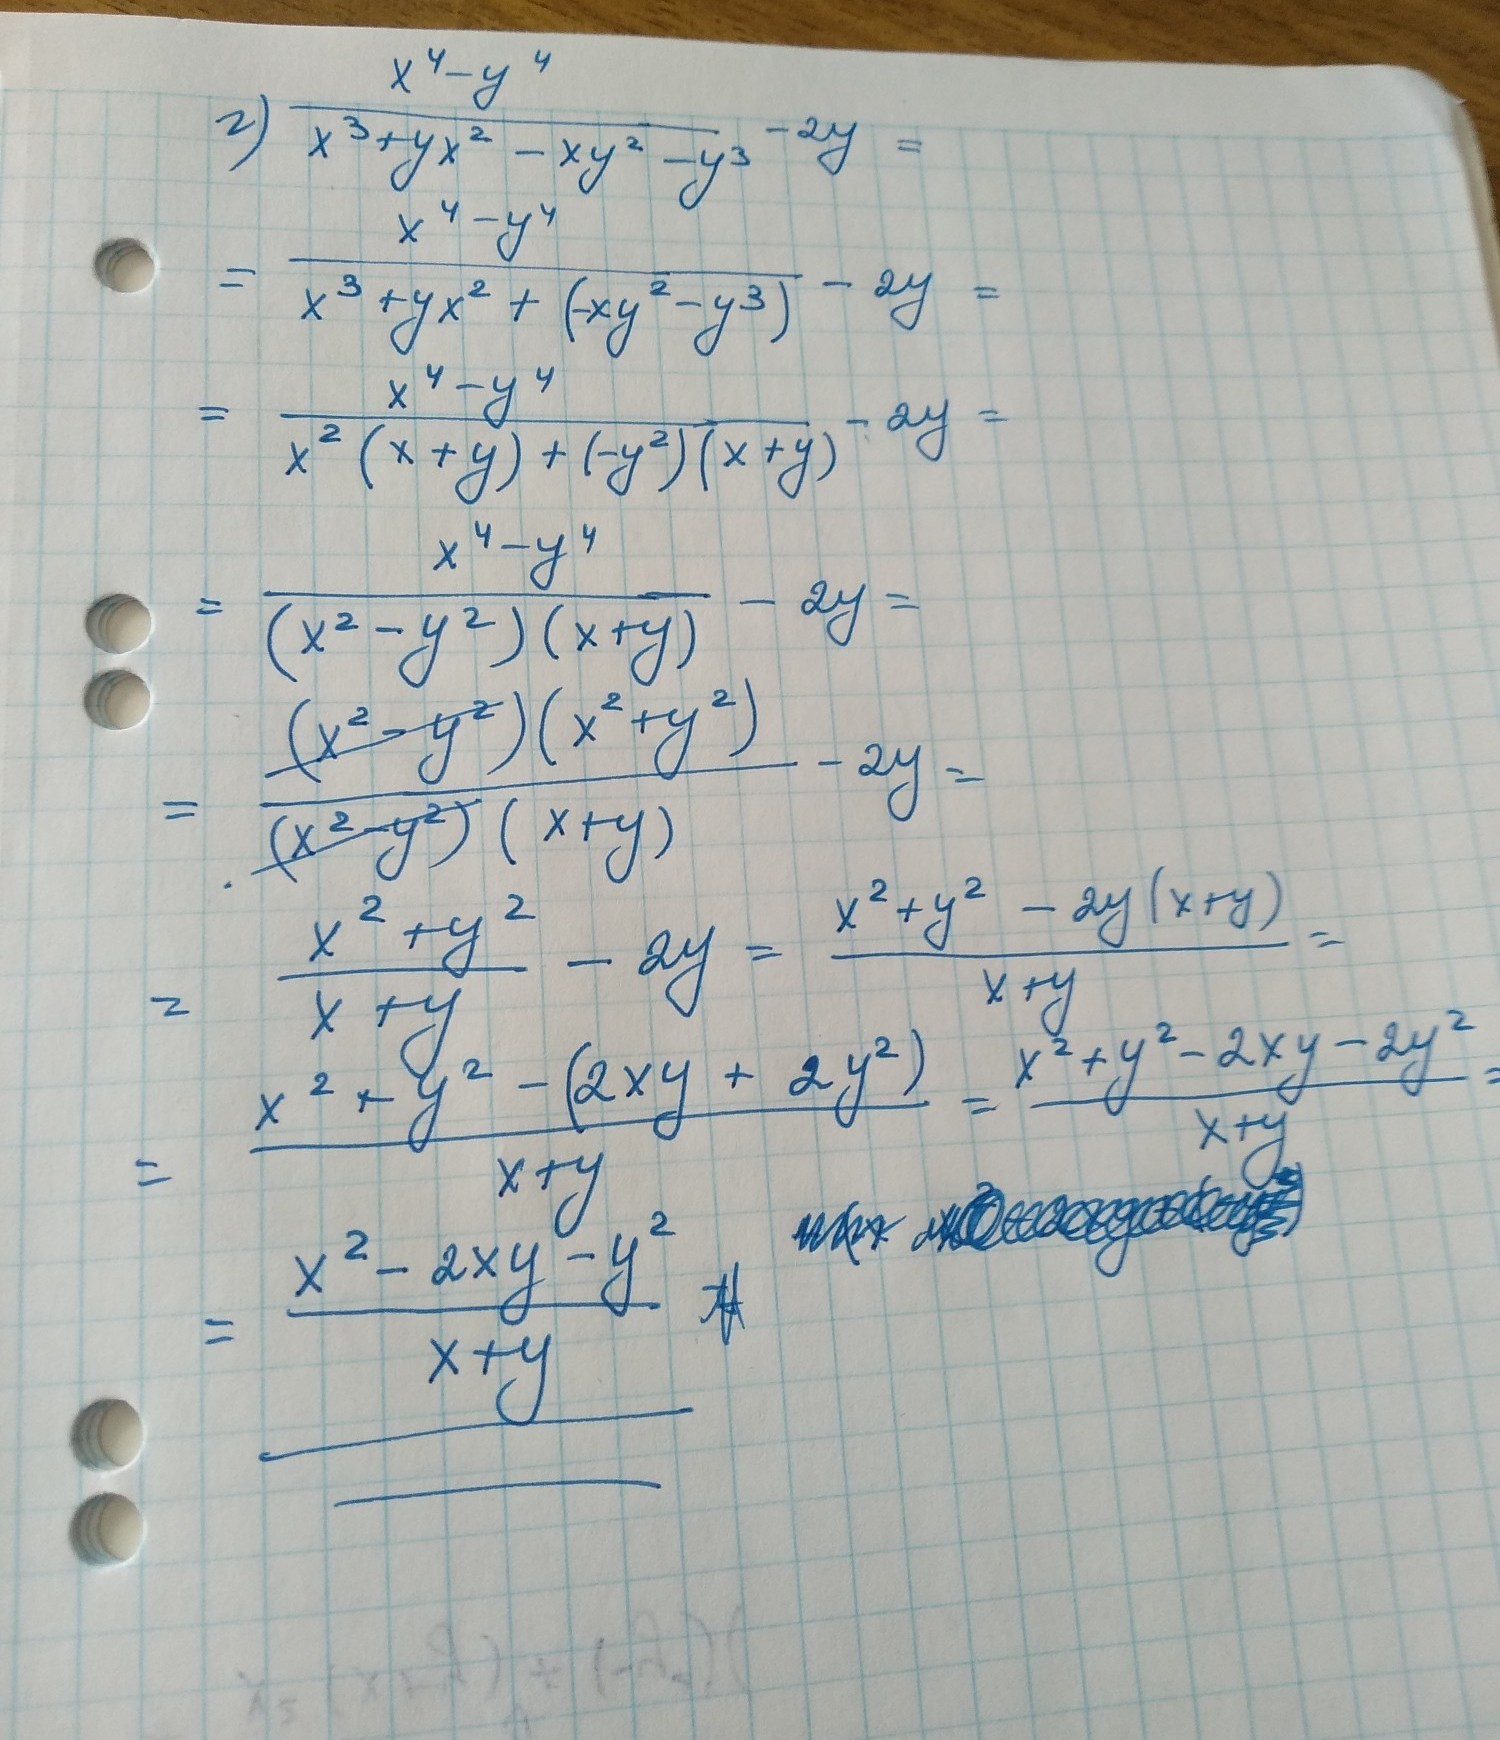 г) x⁴-y⁴ / x³+yx²-xy²-y³ -2y =
= x⁴-y⁴ / x³+yx²+(-xy²-y³) - 2y =
= x⁴-y⁴ / x²(x+y)+(-y²)(x+y) - 2y =
= x⁴-y⁴ / (x²-y²)(x+y) - 2y =
= (x²-y²)(x²+y²) / (x²-y²)(x+y) - 2y =
= x²+y² / x+y - 2y = x²+y²-2y(x+y) / x+y =
= x²+y²-(2xy+2y²) / x+y = x²+y²-2xy-2y² / x+y =
= x²-2xy-y² / x+y